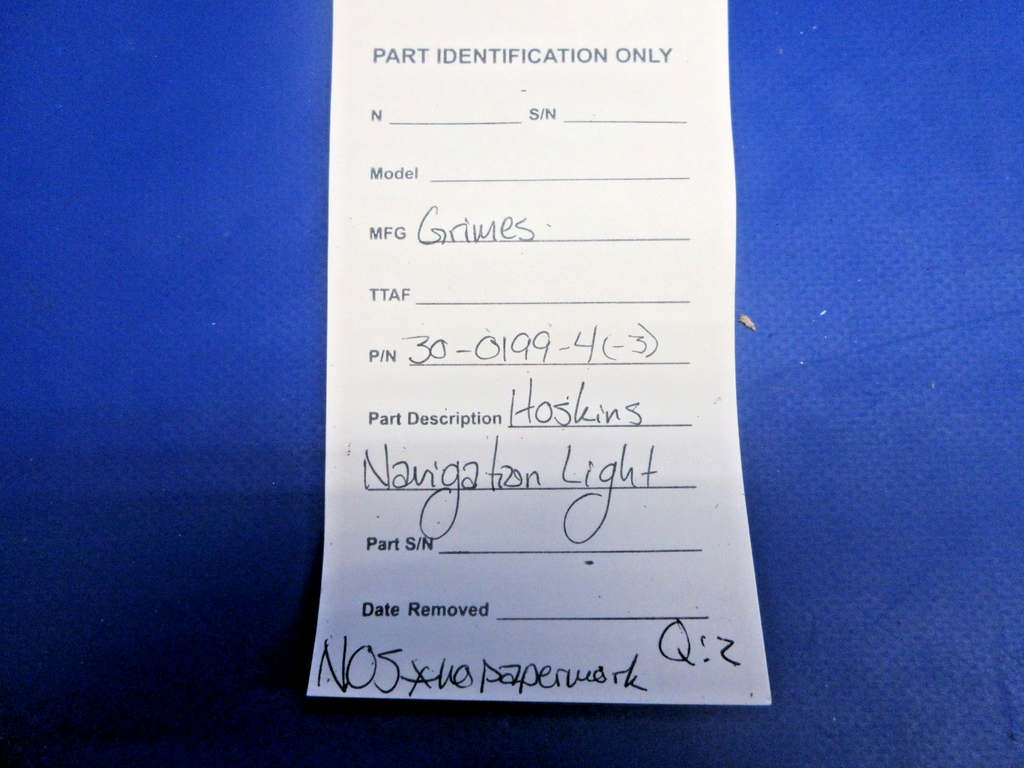 PART IDENTIFICATION ONLY
N S/N
Model
MFG Grimes
TTAF
P/N 30-0199-4(-3)
Part Description Hoskins
Navigation Light
Part S/N
Date Removed
Q:2
NOS *no paperwork